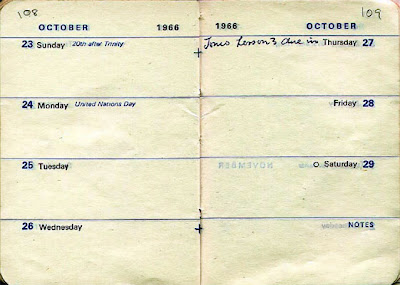 108
OCTOBER 1966
23 Sunday 20th after Trinity
24 Monday United Nations Day
25 Tuesday
26 Wednesday
109
1966 OCTOBER
Lesson 3 due in Thursday 27
Friday 28
Saturday 29
NOTES